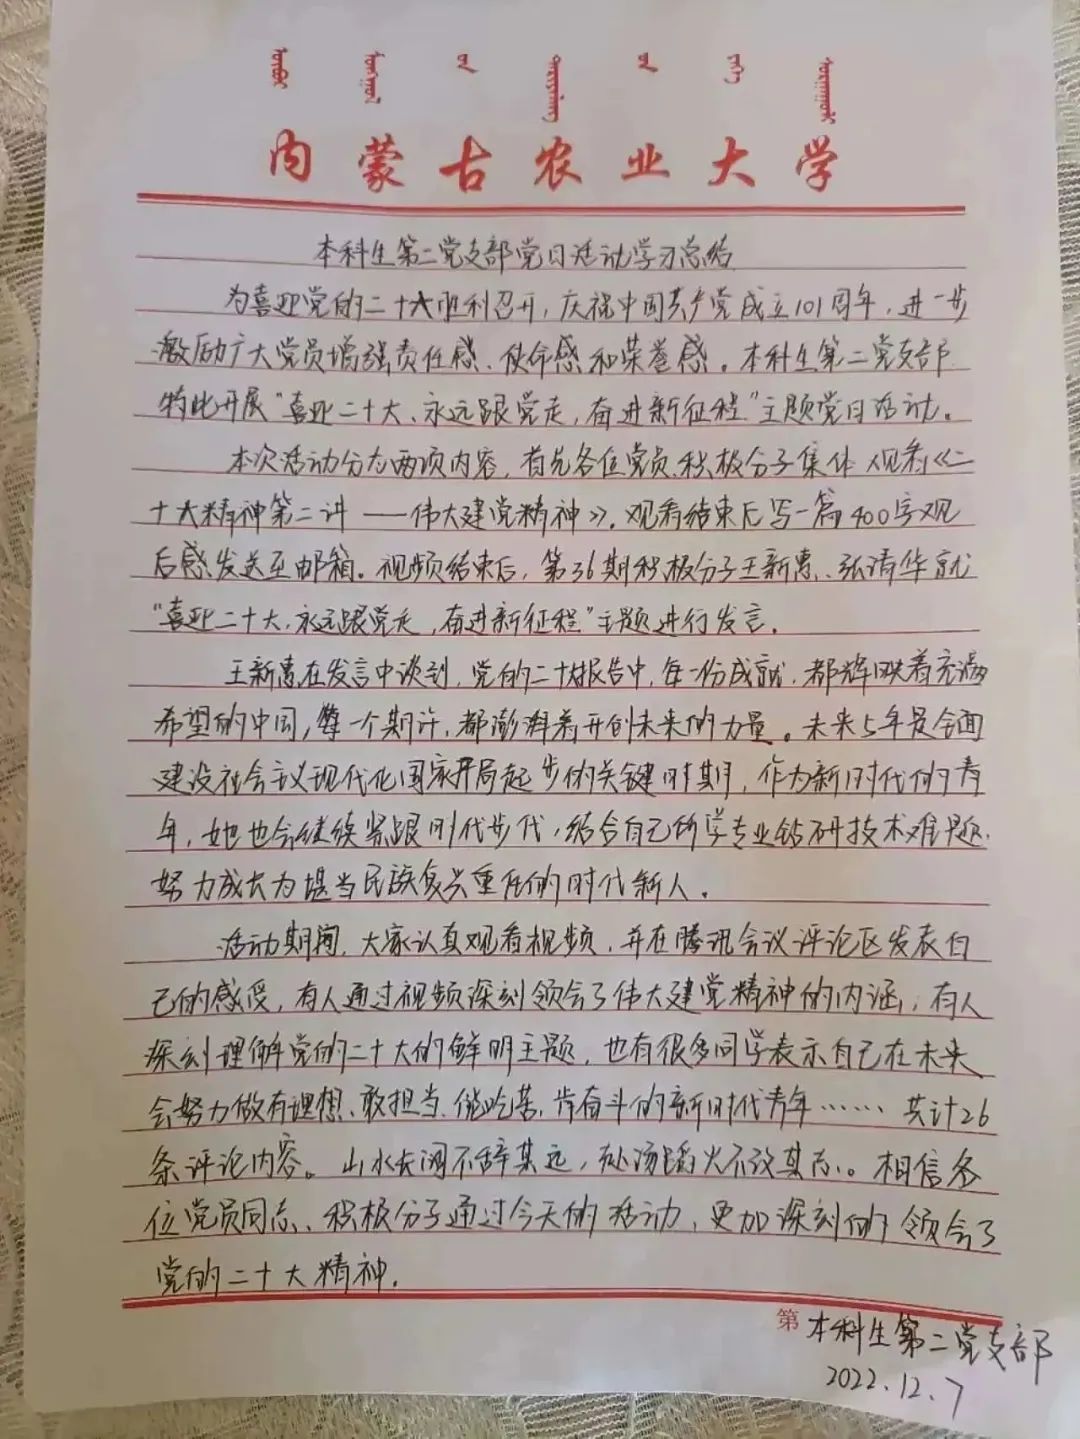 内蒙古农业大学
本科生第二党支部党日活动学习总结
为喜迎党的二十大胜利召开，庆祝中国共产党成立101周年，进一步
激励广大党员增强责任感、使命感和荣誉感。本科生第二党支部
特此开展“喜迎二十大、永远跟党走，奋进新征程”主题党日活动。
本次活动分为两项内容，首先各位党员、积极分子集体观看《二
十大精神第二讲——伟大建党精神》，观看结束后写一篇400字观
后感发送至邮箱。视频结束后，第36期积极分子王新惠、张清华就
“喜迎二十大，永远跟党走，奋进新征程”主题进行发言。
王新惠在发言中谈到，党的二十大报告中，每一份成就，都辉映着充满
希望的中国，每一个期许，都澎湃着开创未来的力量。未来5年是全面
建设社会主义现代化国家开局起步的关键时期，作为新时代的青
年，她也会继续紧跟时代步伐，结合自己所学专业钻研技术难题，
努力成长为堪当民族复兴重任的时代新人。
活动期间，大家认真观看视频，并在腾讯会议评论区发表自
己的感受，有人通过视频深刻领会了伟大建党精神的内涵；有人
深刻理解党的二十大的鲜明主题，也有很多同学表示自己在未来
会努力做有理想、敢担当、能吃苦、肯奋斗的新时代青年……共计26
条评论内容。山水大阔不辞其远，赴汤蹈火不改其志。相信各
位党员同志、积极分子通过今天的活动，更加深刻的领会了
党的二十大精神。
第 本科生第二党支部
2022.12.7